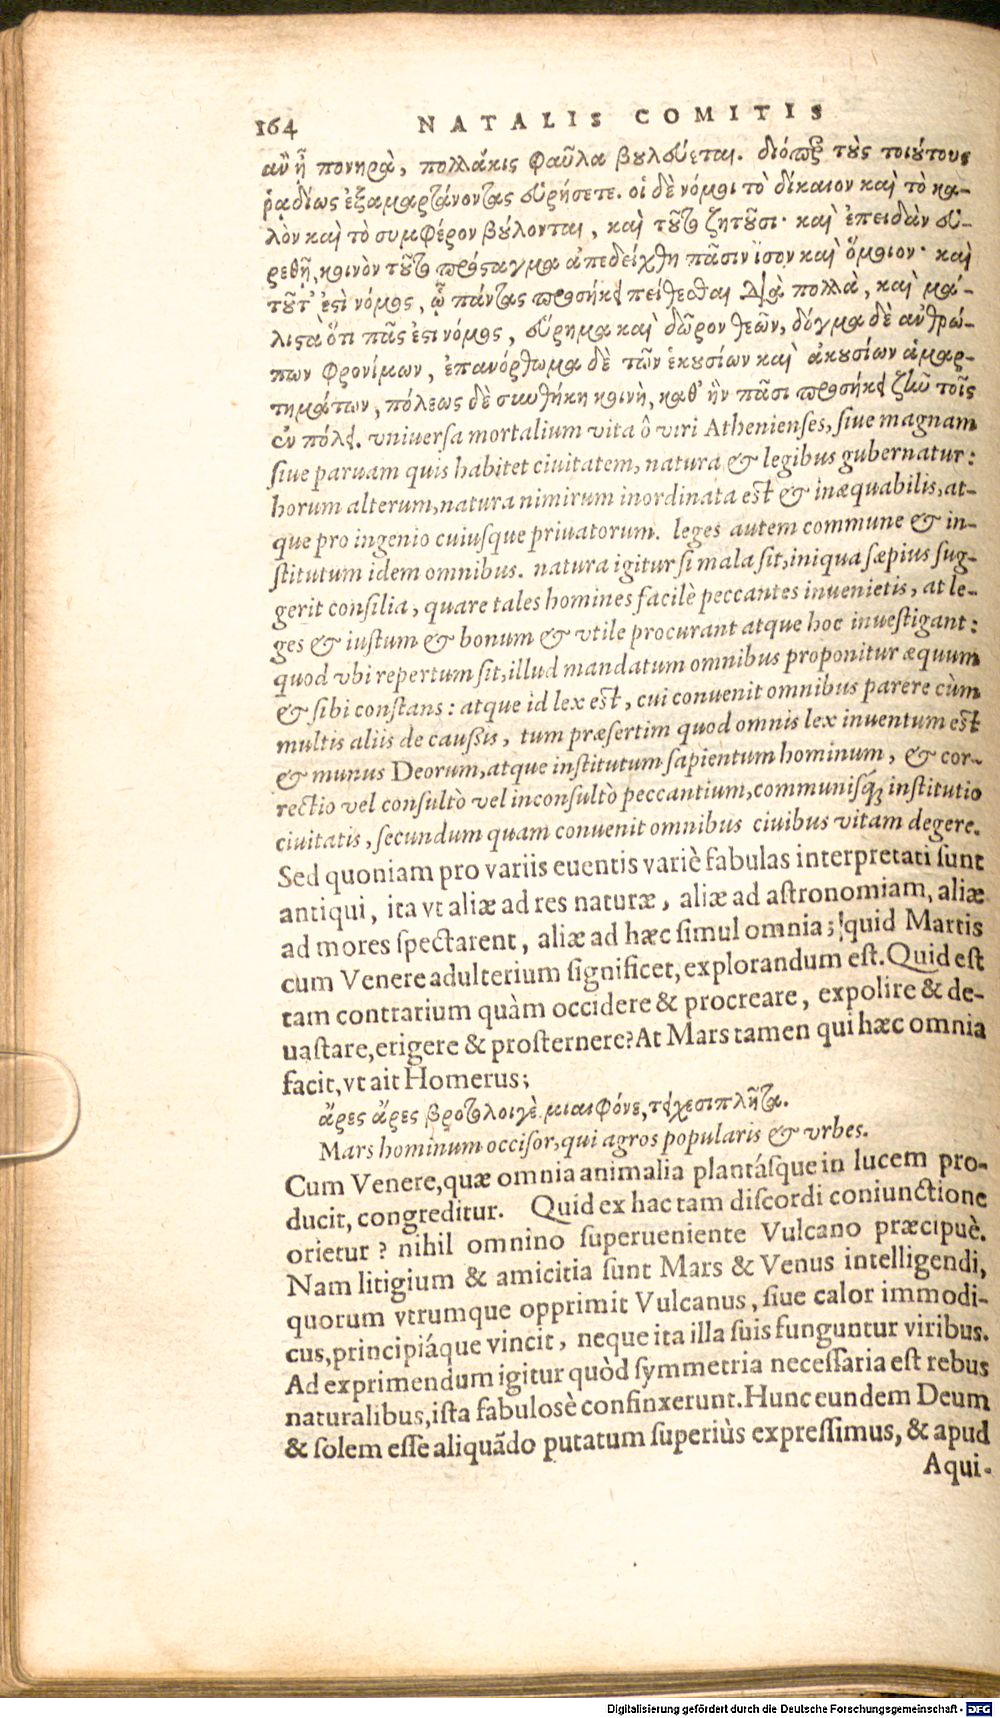 164 NATALIS COMITIS
ἂν ᾖ πονηρὰ, πολλάκις φαῦλα βούλεται. διόπερ τοὺς τοιούτους
ῥᾳδίως ἐξαμαρτάνοντας εὑρήσετε. οἱ δὲ νόμοι τὸ δίκαιον καὶ τὸ κα-
λὸν καὶ τὸ συμφέρον βούλονται, καὶ τοῦτο ζητοῦσι· καὶ ἐπειδὰν εὑ-
ρεθῇ, κοινὸν τοῦτο πρόσταγμα ἀπεδείχθη πᾶσιν ἴσον καὶ ὅμοιον· καὶ
τοῦτ' ἐστὶ νόμος, ᾧ πάντας προσήκει πείθεσθαι διὰ πολλὰ, καὶ μά-
λιστα ὅτι πᾶς ἐστι νόμος, εὕρημα καὶ δῶρον θεῶν, δόγμα δὲ ἀνθρώ-
πων φρονίμων, ἐπανόρθωμα δὲ τῶν ἑκουσίων καὶ ἀκουσίων ἁμαρ-
τημάτων, πόλεως δὲ συνθήκη κοινὴ, καθ' ἣν πᾶσι προσήκει ζῆν τοῖς
ἐν πόλει. vniuersa mortalium vita ô viri Athenienses, siue magnam
siue paruam quis habitet ciuitatem, natura & legibus gubernatur:
horum alterum, natura nimirum inordinata est & inæquabilis, at-
que pro ingenio cuiusque priuatorum. leges autem commune & in-
stitutum idem omnibus. natura igitur si mala sit, iniqua sæpius sug-
gerit consilia, quare tales homines facilè peccantes inuenietis, at le-
ges & iustum & bonum & vtile procurant atque hoc inuestigant:
quod vbi repertum sit, illud mandatum omnibus proponitur æquum
& sibi constans: atque id lex est, cui conuenit omnibus parere cùm
multis aliis de caussis, tum præsertim quod omnis lex inuentum est
& munus Deorum, atque institutum sapientum hominum, & cor-
rectio vel consultò vel inconsultò peccantium, communisq́; institutio
ciuitatis, secundum quam conuenit omnibus ciuibus vitam degere.
Sed quoniam pro variis euentis variè fabulas interpretati sunt
antiqui, ita vt aliæ ad res naturæ, aliæ ad astronomiam, aliæ
ad mores spectarent, aliæ ad hæc simul omnia; quid Martis
cum Venere adulterium significet, explorandum est. Quid est
tam contrarium quàm occidere & procreare, expolire & de-
uastare, erigere & prosternere? At Mars tamen qui hæc omnia
facit, vt ait Homerus;
ἄρες ἄρες βροτολοιγὲ μιαιφόνε, τειχεσιπλῆτα.
Mars hominum occisor, qui agros popularis & vrbes.
Cum Venere, quæ omnia animalia plantásque in lucem pro-
ducit, congreditur. Quid ex hac tam discordi coniunctione
orietur? nihil omnino superueniente Vulcano præcipuè.
Nam litigium & amicitia sunt Mars & Venus intelligendi,
quorum vtrumque opprimit Vulcanus, siue calor immodi-
cus, principiáque vincit, neque ita illa suis funguntur viribus.
Ad exprimendum igitur quòd symmetria necessaria est rebus
naturalibus, ista fabulosè confinxerunt. Hunc eundem Deum
& solem esse aliquādo putatum superiùs expressimus, & apud
Aqui-
Digitalisierung gefördert durch die Deutsche Forschungsgemeinschaft - DFG